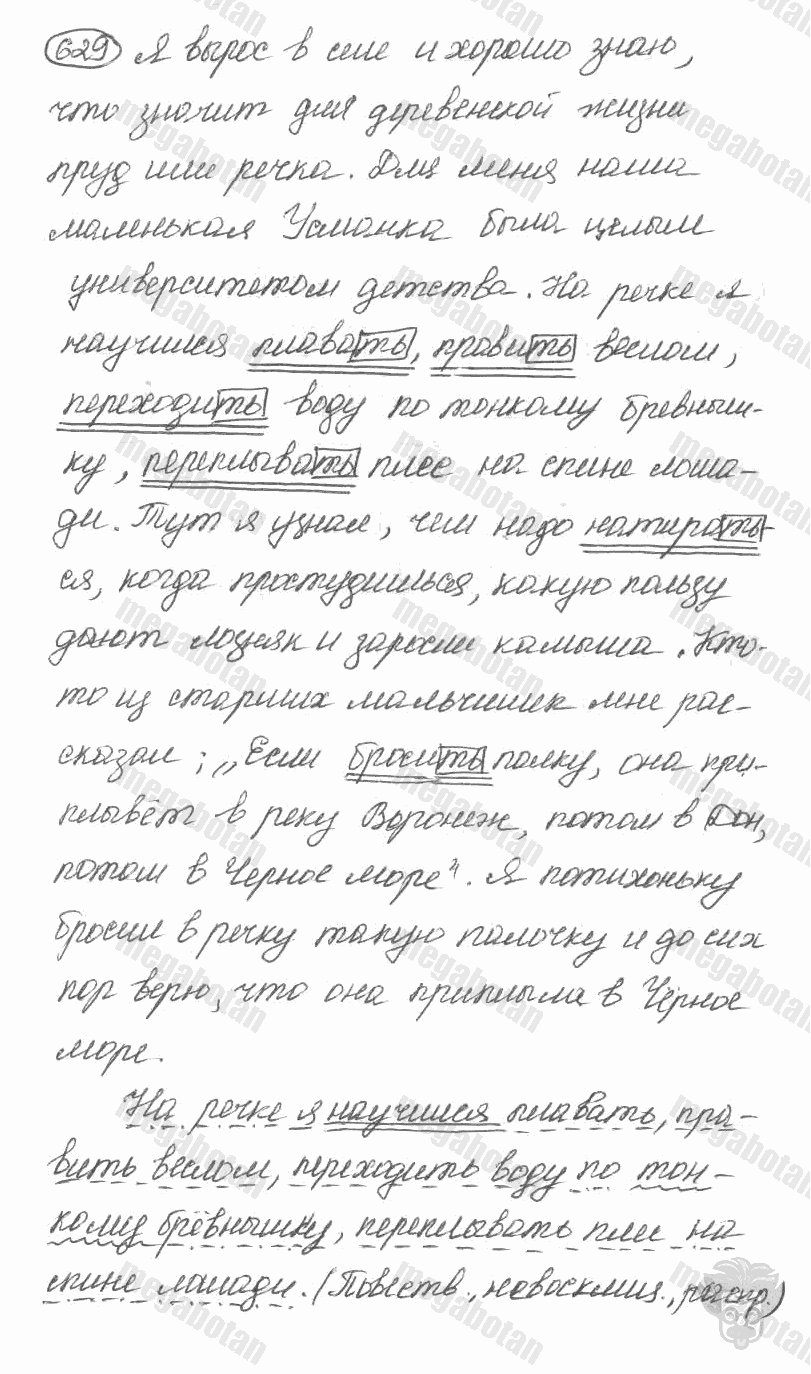 629 Я вырос в селе и хорошо знаю,
что значит для деревенской жизни
пруд или речка. Для меня наша
маленькая Усманка была целым
университетом детства. На речке я
научился плавать, править веслом,
переходить воду по тонкому бревныш-
ку, переплывать плес на спине лоша-
ди. Тут я узнал, чем надо натирать-
ся, когда простудишься, какую пользу
дают лозняк и заросли камыша. Кто-
то из старших мальчишек мне рас-
сказал; „Если бросить палку, она при-
плывёт в реку Воронеж, потом в Дон,
потом в Черное море". Я потихоньку
бросил в речку такую палочку и до сих
пор верю, что она приплыла в Чёрное
море.
На речке я научился плавать, пра-
вить веслом, переходить воду по тон-
кому брёвнышку, переплывать плес на
спине лошади. (Повеств., невосклиц., распр.)
megabotan